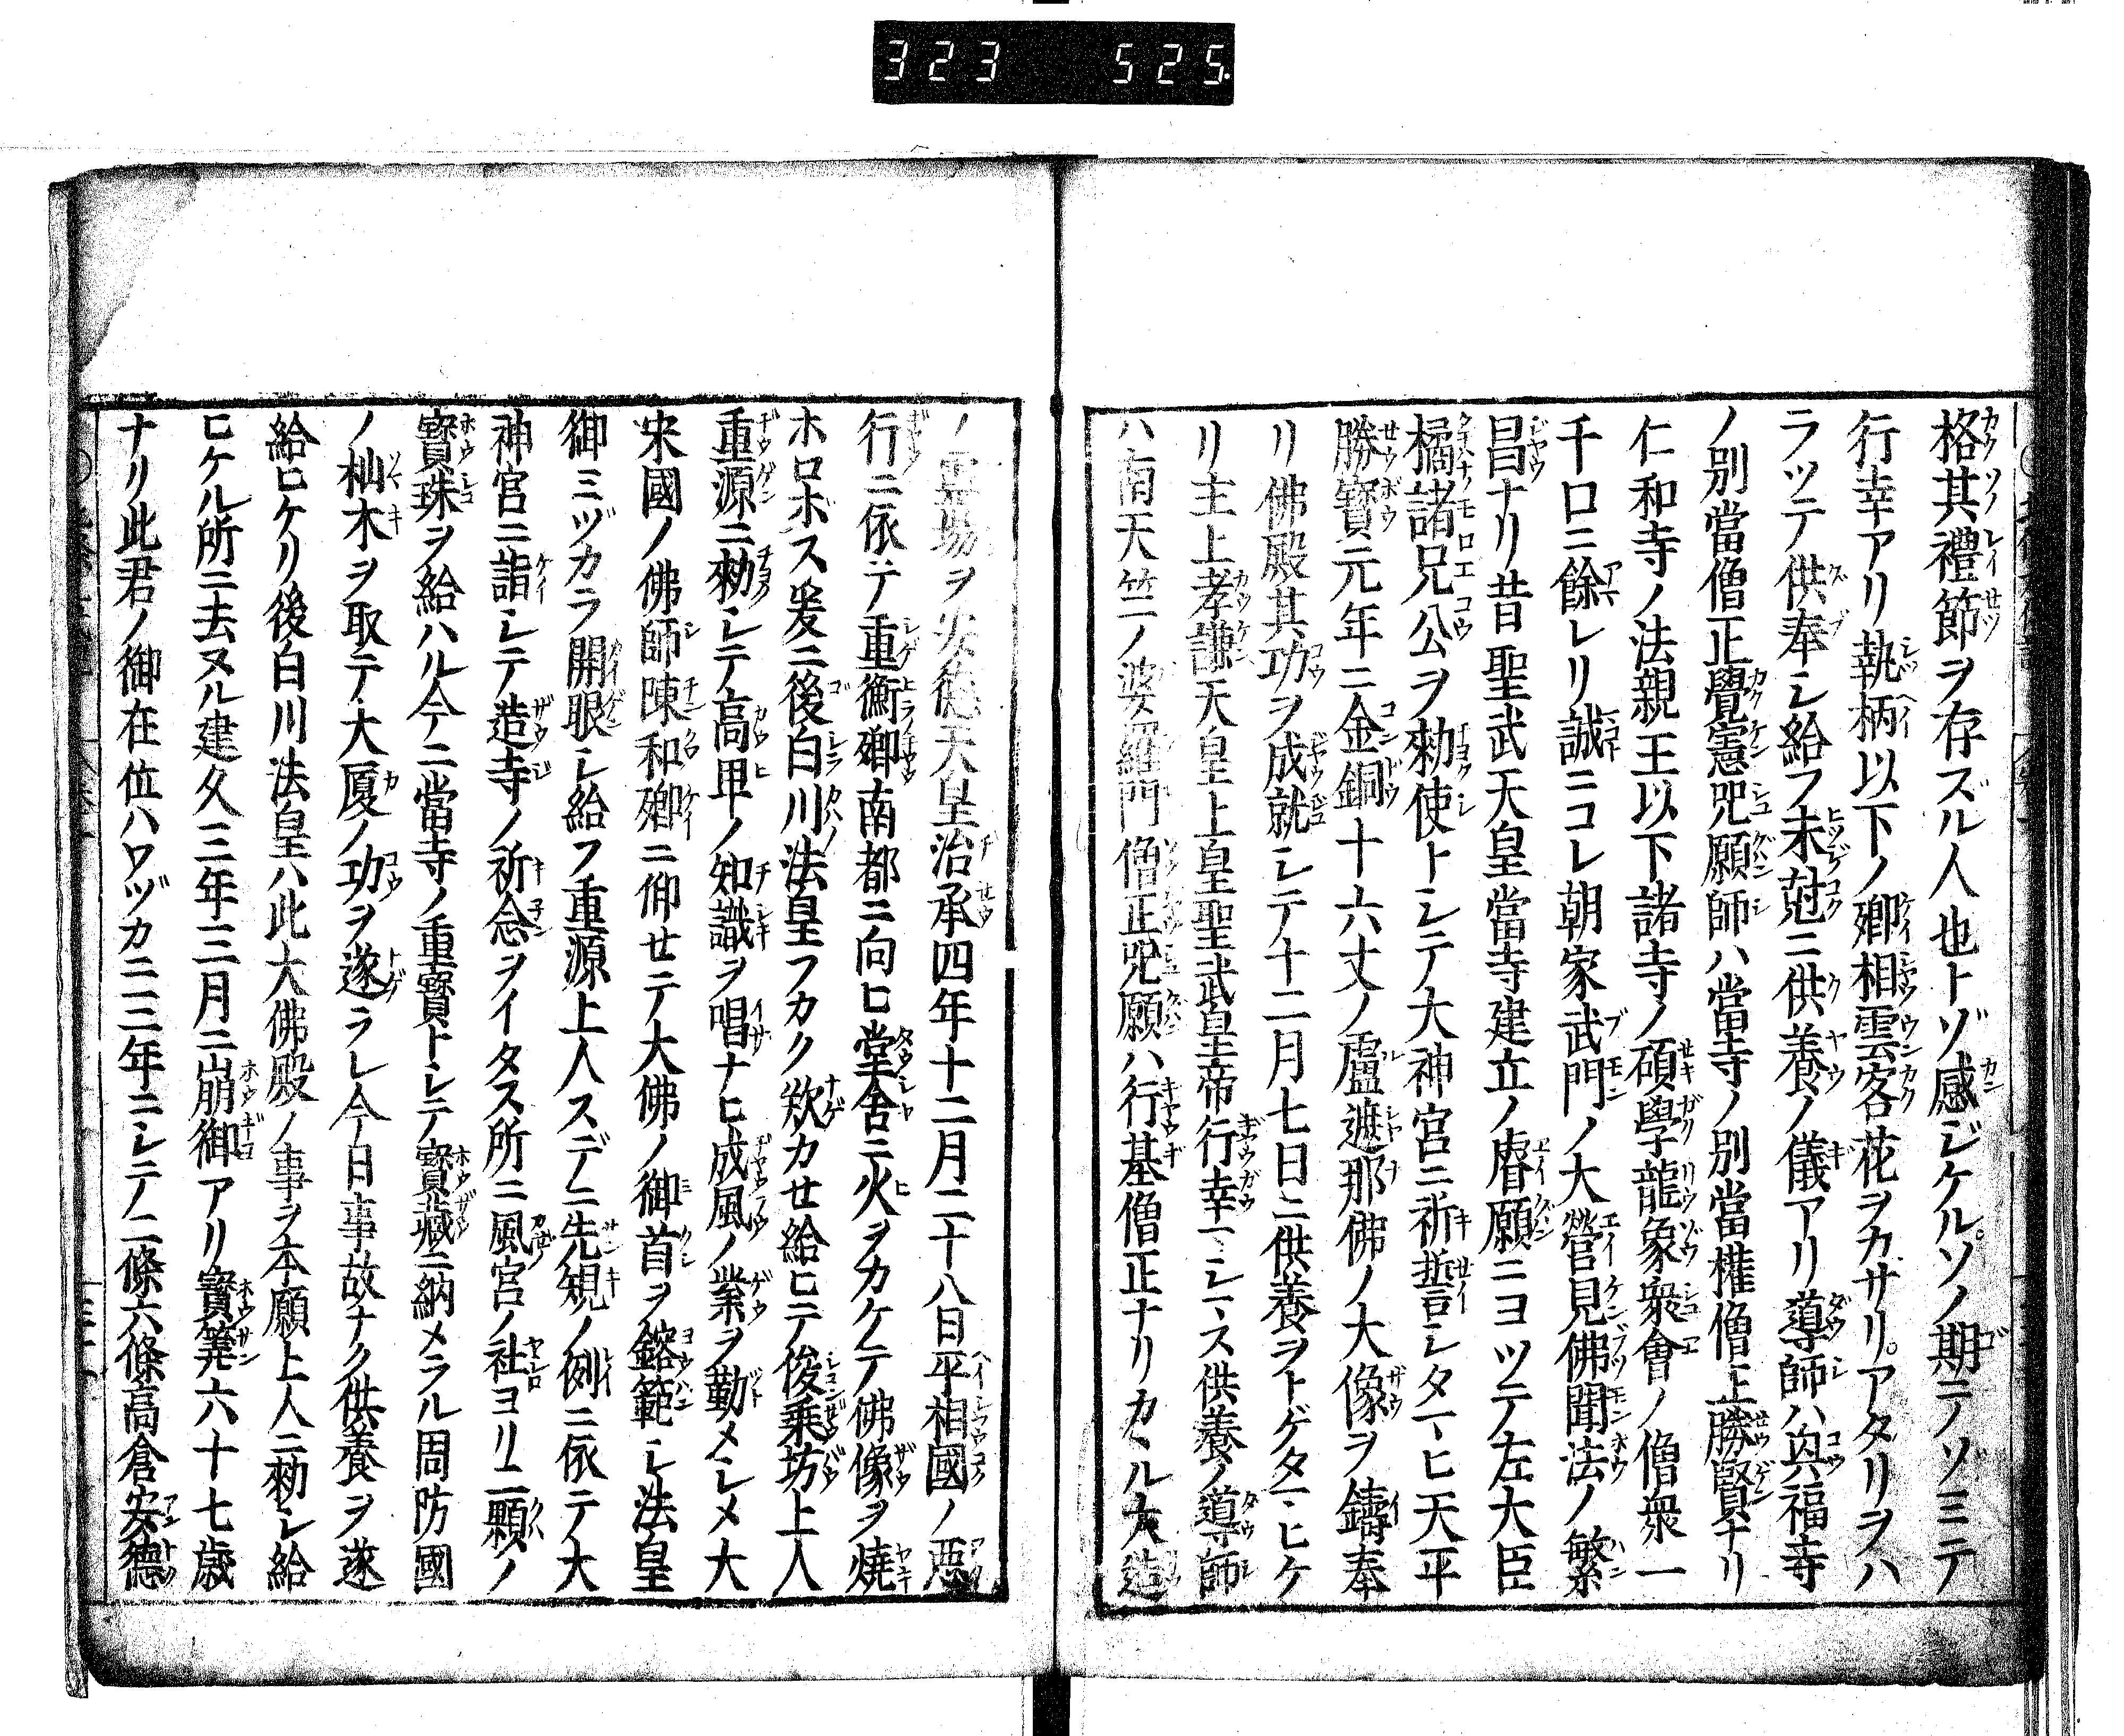 323 525
格其禮節ヲ存ズル人也トゾ感ジケルソノ期ニノゾミテ
行幸アリ執柄以下ノ卿相雲客花ヲカサリアタリヲハ
ラツテ供奉シ給フ未尅ニ供養ノ儀アリ導師ハ興福寺
ノ別當僧正覺憲咒願師ハ當寺ノ別當權僧正勝賢ナリ
仁和寺ノ法親王以下諸寺ノ碩學龍象衆會ノ僧衆一
千口ニ餘レリ誠ニコレ朝家武門ノ大營見佛聞法ノ繁
昌ナリ昔聖武天皇當寺建立ノ睿願ニヨツテ左大臣
橘諸兄公ヲ勅使トシテ大神宮ニ祈誓シタマヒ天平
勝寳元年ニ金銅十六丈ノ盧遮那佛ノ大像ヲ鑄奉
リ佛殿其功ヲ成就シテ十二月七日ニ供養ヲトゲタマヒケ
リ主上孝謙天皇上皇聖武皇帝行幸マシマス供養ノ導師
ハ南天竺ノ婆羅門僧正咒願ハ行基僧正ナリカヽル大造
ノ霊場ヲ安徳天皇治承四年十二月二十八日平相國ノ惡
行ニ依テ重衡卿南都ニ向ヒ堂舎ニ火ヲカケテ佛像ヲ燒
ホロボス爰ニ後白川法皇フカク歎カせ給ヒテ俊乗坊上人
重源ニ勅シテ高卑ノ知識ヲ唱ナヒ成風ノ業ヲ勤メシメ大
宋國ノ佛師陳和卿ニ仰せテ大佛ノ御首ヲ鎔範シ法皇
御ミヅカラ開眼シ給フ重源上人スデニ先規ノ例ニ依テ大
神宮ニ詣シテ造寺ノ祈念ヲイタス所ニ風宮ノ社ヨリ二顆ノ
寳珠ヲ給ハル今ニ當寺ノ重寳トシテ寳藏ニ納メラル周防國
ノ杣木ヲ取テ大厦ノ功ヲ遂ラレ今日事故ナク供養ヲ遂
給ヒケリ後白川法皇ハ此大佛殿ノ事ヲ本願上人ニ勅シ給
ヒケル所ニ去ヌル建久三年三月ニ崩御アリ寳筭六十七歳
ナリ此君ノ御在位ハワヅカニ三年ニシテ二條六條高倉安德